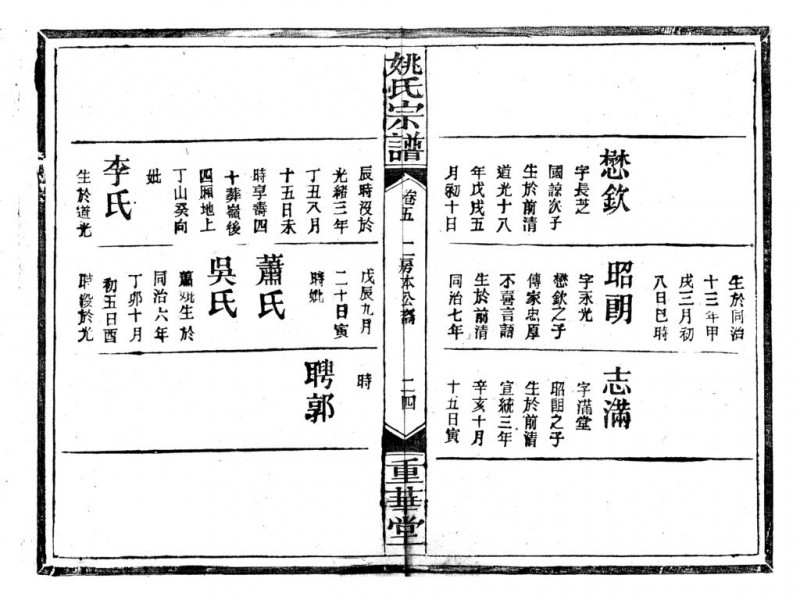 懋欽
字長芝
國諒次子
生於前清
道光十八
年戊戌五
月初十日
生於同治
十三年甲
戌三月初
八日巳時
昭朗
字永光
懋欽之子
傳家忠厚
不喜言語
生於前清
同治七年
志滿
字滿堂
昭朗之子
生於前清
宣統三年
辛亥十月
十五日寅
姚氏宗譜
卷五
二房本公譜
二四
重華堂
辰時沒於
光緒三年
丁丑八月
十五日未
時享壽四
十葬嶺後
四厢地上
丁山癸向
妣
李氏
生於道光
戊辰九月
二十日寅
時妣
蕭氏
吳氏
蕭妣生於
同治六年
丁卯十月
初五日酉
時歿於光
時
聘郭